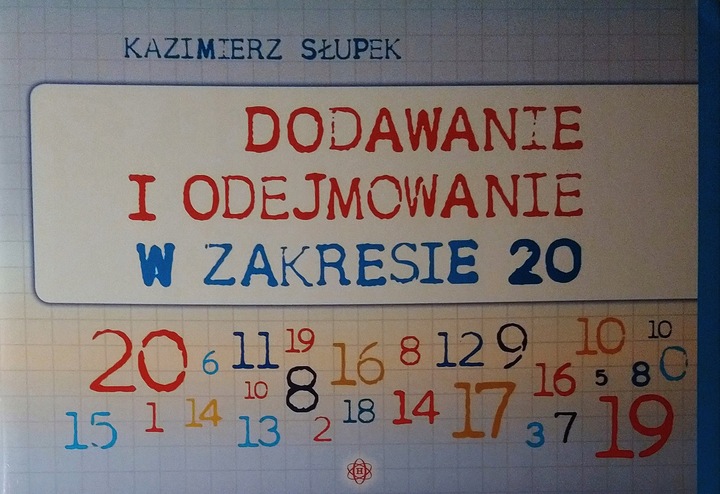 KAZIMIERZ SŁUPEK
DODAWANIE
I ODEJMOWANIE
W ZAKRESIE 20
20 6 11 19 16 8 12 9 10 10
15 1 14 10 13 8 2 18 14 17 16 3 5 7 8 19 0
H